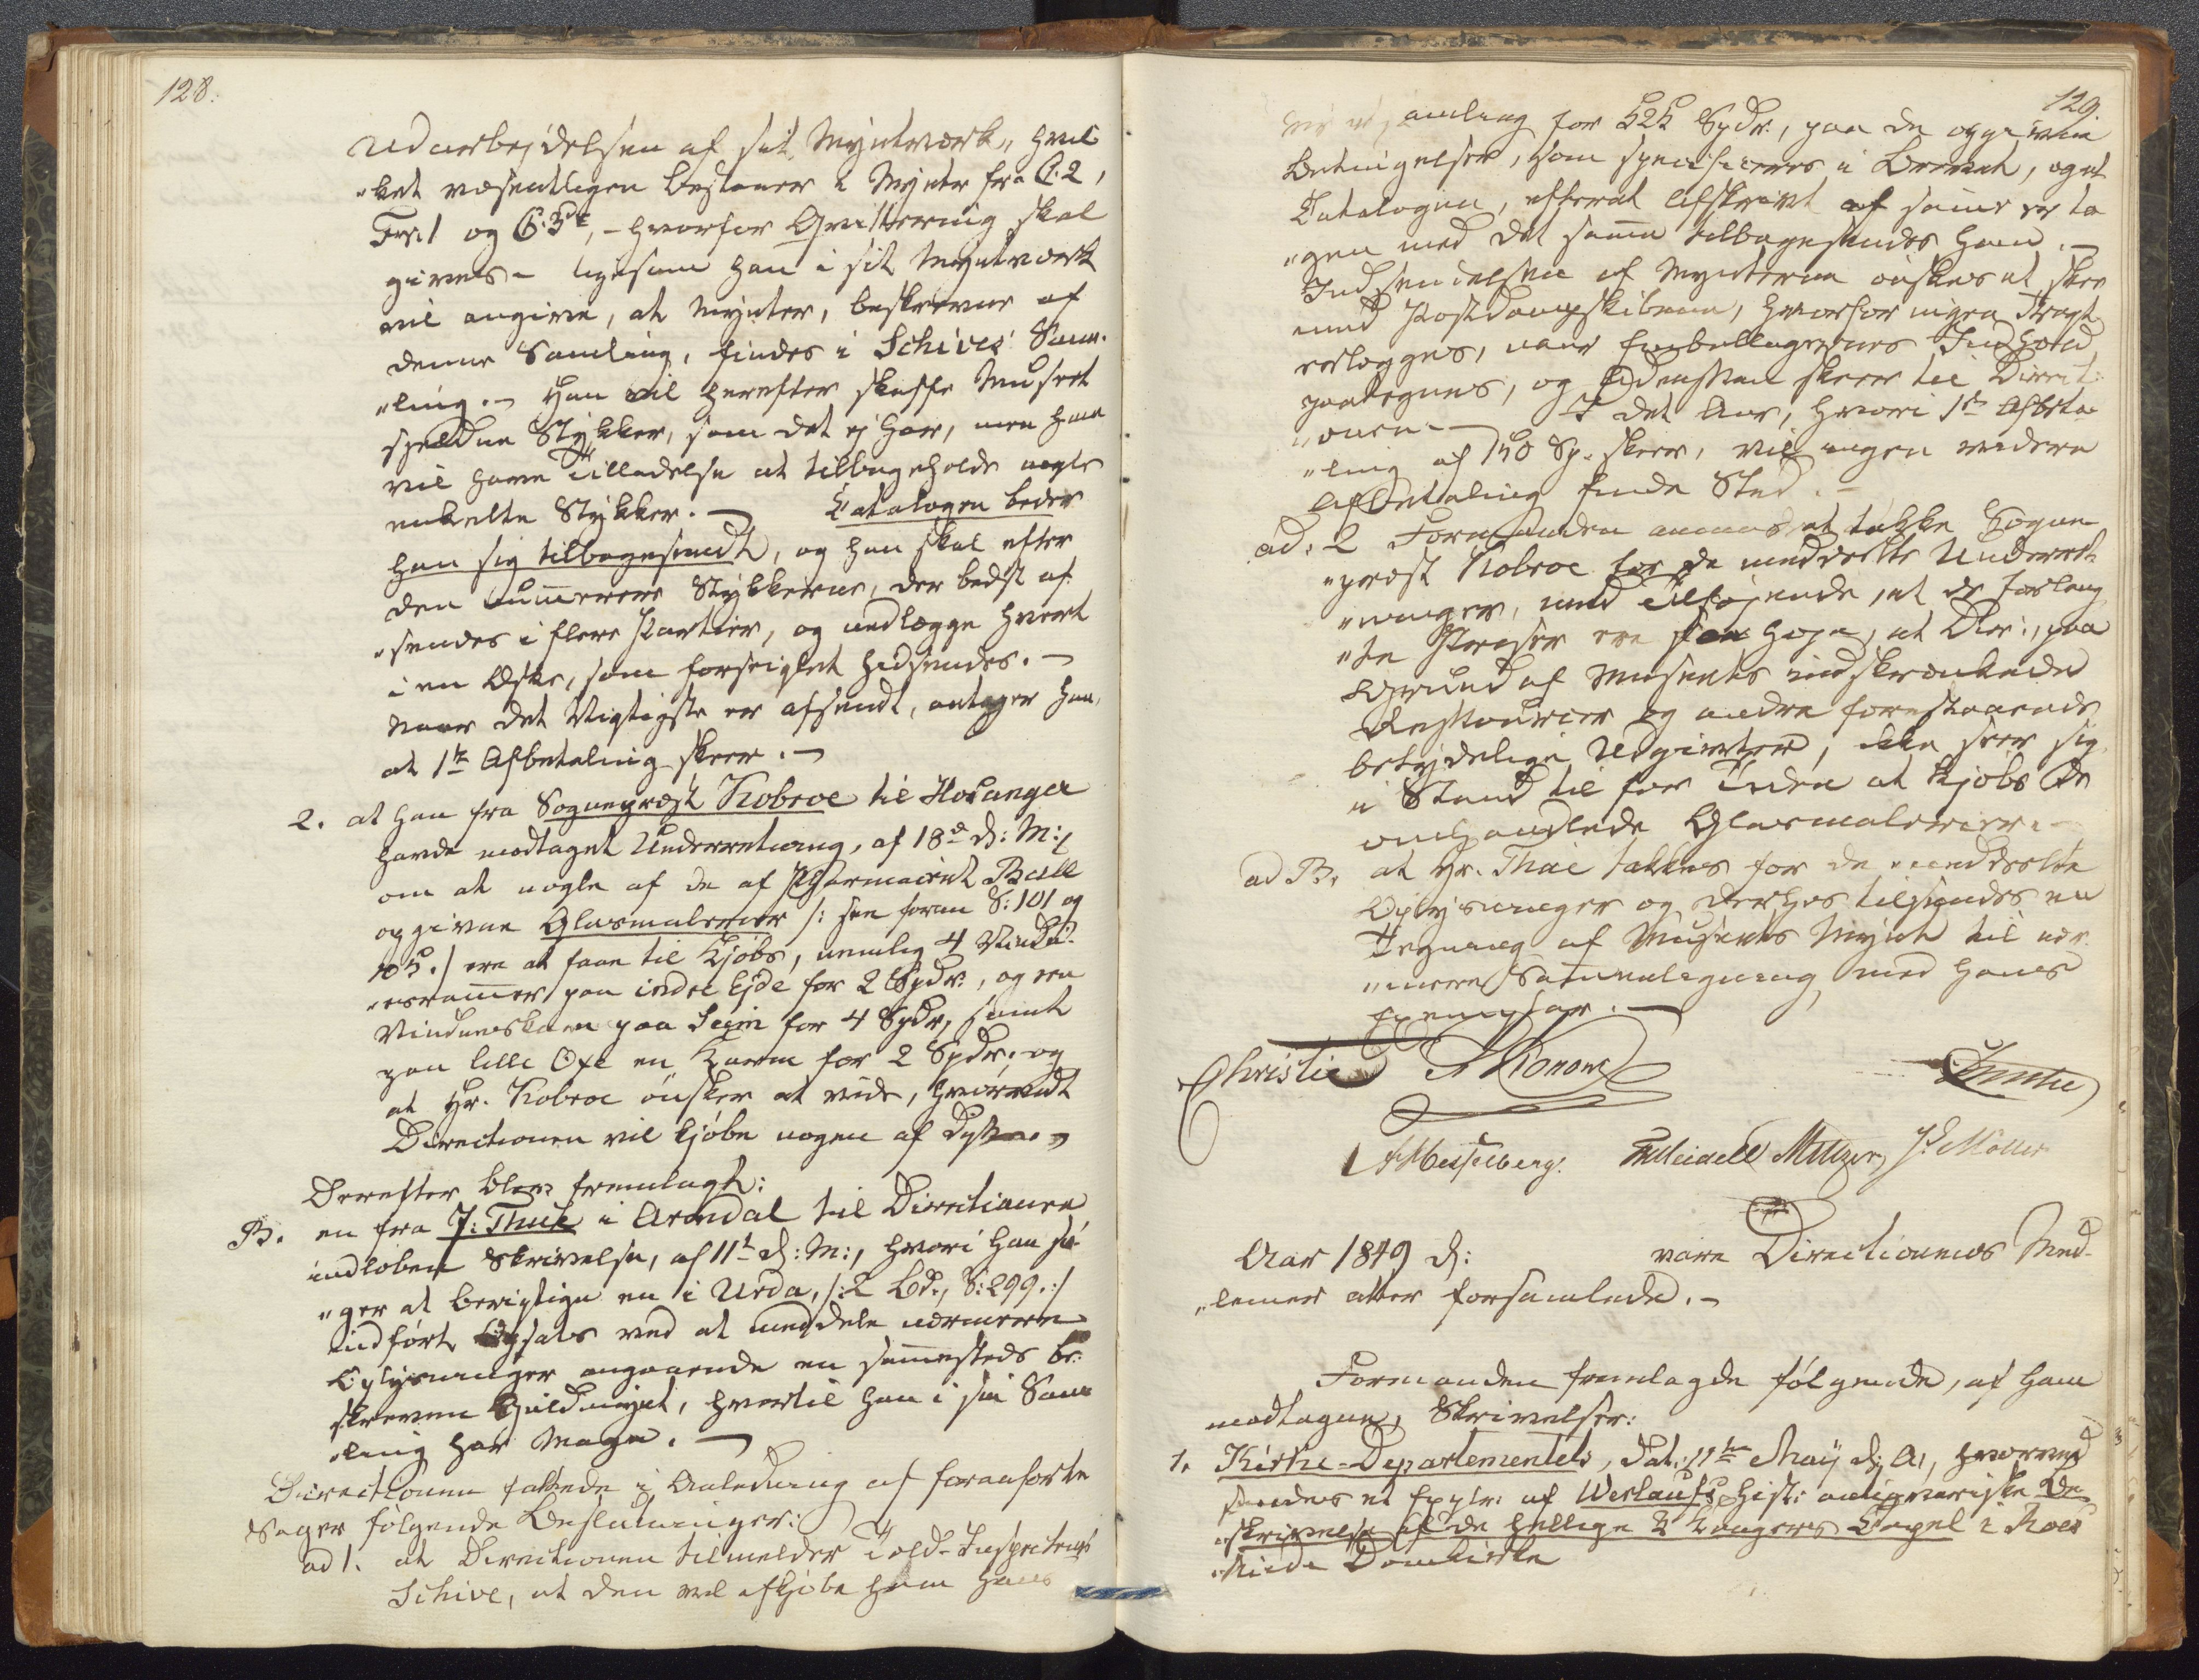 128.
Udarbejdelsen af sit Myntværk, hvil
"ket væsentligen bestaaer i Mynter fra C. 2,
Fr. 1 og C. 5te, - hvorfor Qvittering skal
gives - ligesom han i sit Myntværk
vil angive, at Mynter, beskrevne af
denne Samling, findes i Schives' Sam-
"ling. - Han vil herefter skaffe Museet
sjeldne Stykker, som det ej har, men han
vil have Tilladelse at tilbageholde nogle
enkelte Stykker. - Catalogen beder
han sig tilbagesendt, og han skal efter
den nummerere Stykkerne, der bedst af-
"sendes i flere Partier, og nedlægge hvert
i en Æske, som forseiglet hidsendes. -
Naar det Vigtigste er afsendt, antager han,
at 1te Afbetaling skeer. -
2. at han fra Sognepræst Kobroe til Hosanger
havde modtaget Underretning, af 18de d: M:,
om at nogle af de af Pharmaceut Bull
opgivne Glasmalerier /: see foran S: 101 og
105./ ere at faae til Kjøbs, nemlig 4 Vindu-
"esrammer paa indre Ejde for 2 Spdr:, og een
Vindueskarm paa Seim for 4 Spdr, samt
paa lille Oxe en Karm for 2 Spdr: og
at Hr. Kobroe ønsker at vide, hvorvidt
Directionen vil kjøbe nogen af disse. -
Derefter blev fremlagt:
B. en fra J: Thue i Arendal til Directionen
indløben Skrivelse, af 11te d: M:, hvori han sø-
"ger at berigtige en i Urda, /: 2 Bd:, S: 299. :/
indført Opsats ved at meddele nærmere
Oplysninger angaaende en sammesteds be-
skreven Guldmynt, hvortil han i sin Sam
"ling har Mage. -
Directionen fattede i Anledning af foranførte
Sager følgende Beslutninger:
ad 1. at Directionen tilmelder Told-Inspecteur
Schive, at den vil afkjøbe ham hans
129.
Myntsamling for 525 Spdr:, paa de opgivne
Betingelser, som specificeres i Brevet, og at
Catalogen, efterat Afskrivt af samme er ta
"gen med det samme tilbagesendes ham. -
Indsendelsen af Mynterne ønskes at skee
med Postdampskibene, hvorfor ingen Fragt
erlægges, naar Emballagernes Indhold
paategnes, og Udenskrift skeer til Direct-
"onen - I det Aar, hvori 1ste Afbeta-
"ling af 150 Sp. skeer, vil ingen videre
Afbetaling finde Sted. -
ad: 2 Formanden anmodes at takke Sogne
"præst Kobroe for de meddeelte Underret-
"ninger, med Tilføjende, at de forlang
"te Priser ere saa høje, at Dir:, paa
Grund af Museets indskrænkede
Ressourcer og andre forestaaende
betydelige Udgivter, ikke seer sig
i Stand til for Tiden at kjøbe de
omhandlede Glasmalerier. -
ad B. at Hr. Thue takkes for de meddeelte
Oplysninger og derhos tilsendes en
Tegning af Museets Mynt til nær-
"mere Sammenligning med hans
Exemplar. -
Christie A Konow
A Hesselberg. Meidell Meltzer, J Møller
Aar 1849 d: vare Directionens Med-
"lemer atter forsamlede. -
Formanden fremlagde følgende, af ham
modtagne, Skrivelser:
1. Kirke-Departementets, dat: 11te Maij d: A:, hvorved
sendes et Explr: af Werlaufs hist: antiqvariske Be
"skrivelse af de hellige 3 Kongers Capel i Roes
"kilde Domkirke